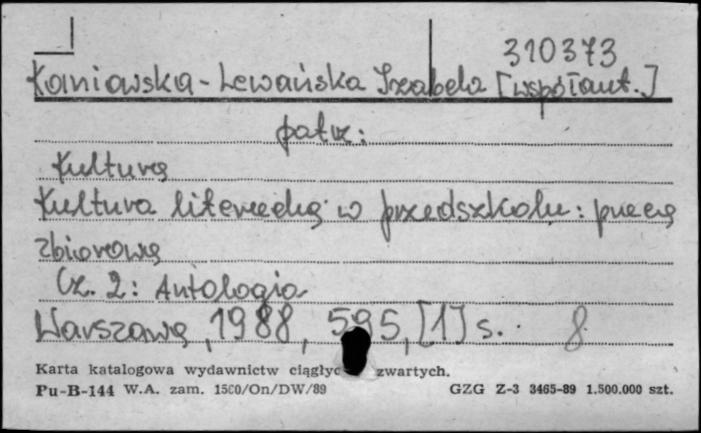 310373
Kaniowska-Lewańska Izabela [współaut.]
patrz:
Kultura
Kultura literacka w przedszkolu: praca
zbiorowa
Cz. 2: Antologia
Warszawa, 1988, 595, [1] s. 8
Karta katalogowa wydawnictw ciągłyc zwartych.
Pu-B-144 W.A. zam. 1500/On/DW/89 GZG Z-3 3465-89 1.500.000 szt.